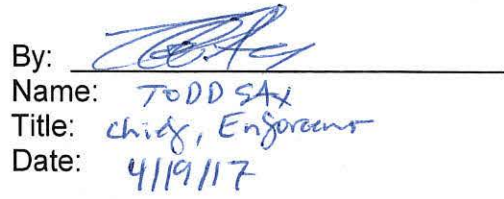 By:
Name: TODD SAX
Title: chief, Enforcement
Date: 4/19/17